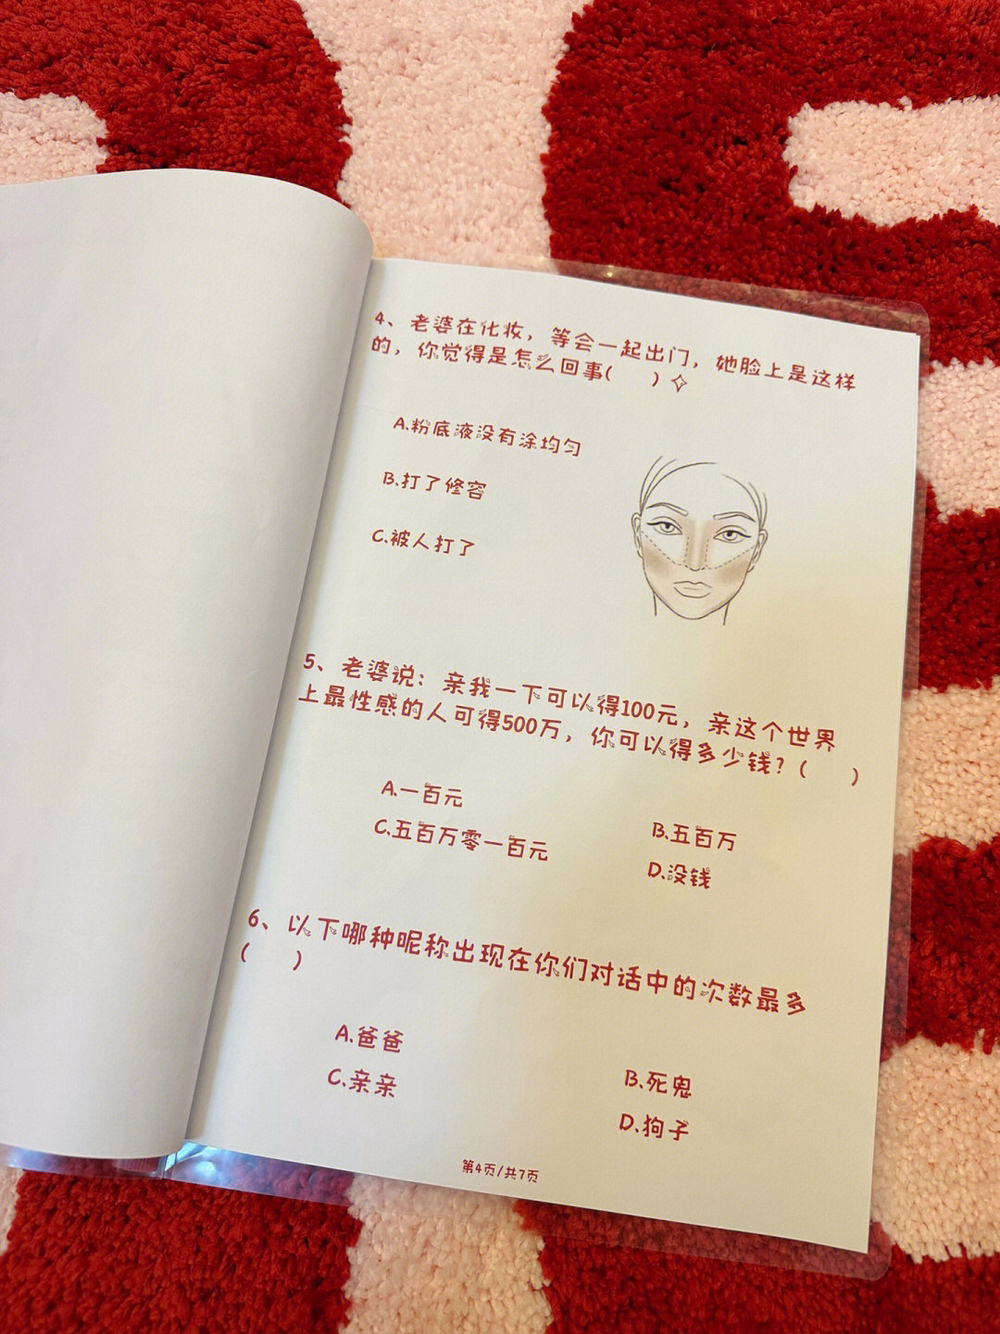 4、老婆在化妆，等会一起出门，她脸上是这样
的，你觉得是怎么回事(　　)✧
A.粉底液没有涂均匀
B.打了修容
C.被人打了
5、老婆说：亲我一下可以得100元，亲这个世界
上最性感的人可得500万，你可以得多少钱？(　　)
A.一百元
B.五百万
C.五百万零一百元
D.没钱
6、以下哪种昵称出现在你们对话中的次数最多
(　　)
A.爸爸
B.死鬼
C.亲亲
D.狗子
第4页/共7页